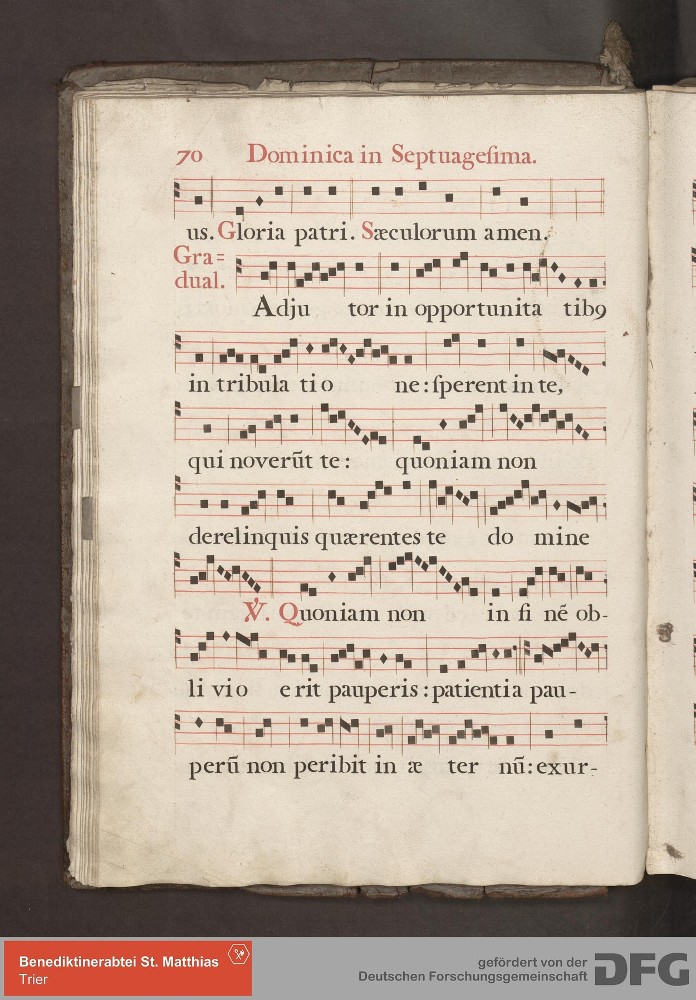 70 Dominica in Septuageſima.
us. Gloria patri. Sæculorum amen.
Gra=
dual.
Adju tor in opportunita tibꝯ
in tribula tio ne: ſperent in te,
qui noverūt te: quoniam non
derelinquis quærentes te do mine
℣. Quoniam non in fi nē ob-
li vio erit pauperis: patientia pau-
perū non peribit in æ ter nū: exur-
Benediktinerabtei St. Matthias
Trier
gefördert von der
Deutschen Forschungsgemeinschaft
DFG